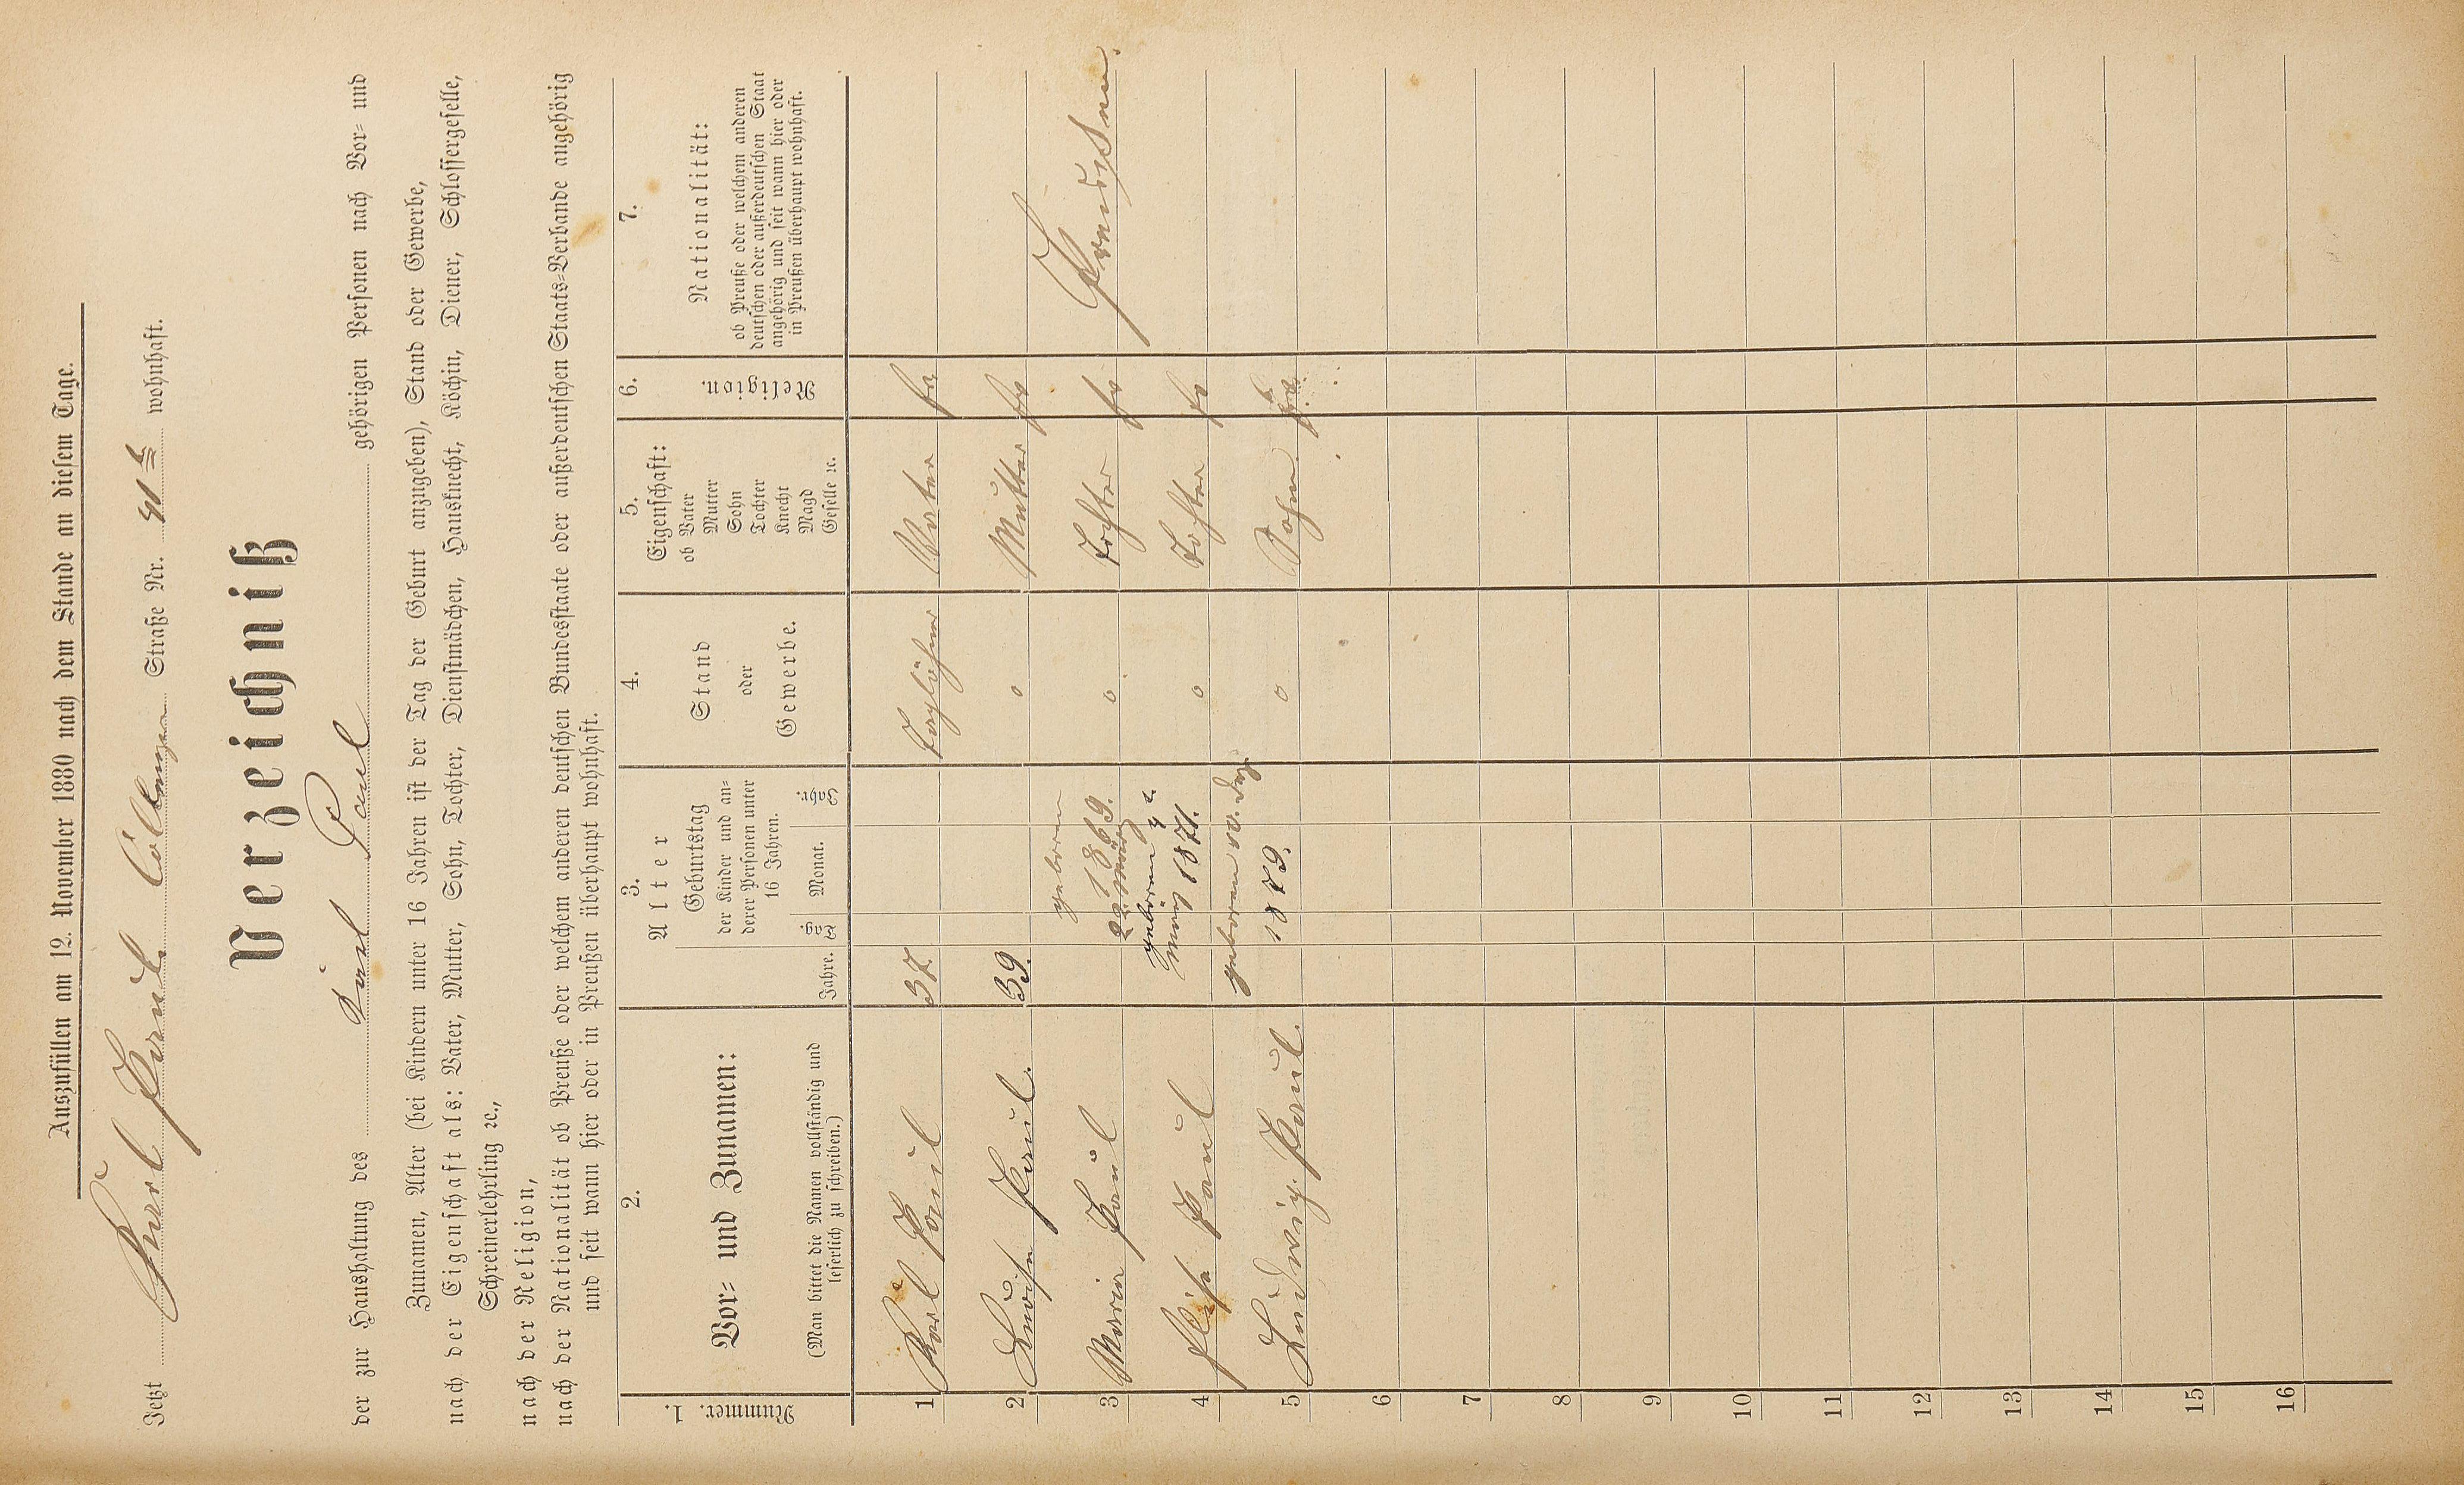 Auszufüllen am 12. November 1880 nach dem Stande an diesem Tage.
Jetzt Karl Paul Straße Nr. wohnhaft.
Verzeichniß
der zur Haushaltung des Karl Paul gehörigen Personen nach Vor- und
Zunamen, Alter (bei Kindern unter 16 Jahren ist der Tag der Geburt anzugeben), Stand oder Gewerbe,
nach der Eigenschaft als: Vater, Mutter, Sohn, Tochter, Dienstmädchen, Hausknecht, Köchin, Diener, Schlossergeselle,
Schreinerlehrling ꝛc.,
nach der Religion,
nach der Nationalität ob Preuße oder welchem anderen deutschen Bundesstaate oder außerdeutschen Staats-Verbande angehörig
und seit wann hier oder in Preußen überhaupt wohnhaft.
Nummer. 1.
2.
Vor- und Zunamen:
(Man bittet die Namen vollständig und
leserlich zu schreiben.)
3.
Alter
Geburtstag
der Kinder und an-
derer Personen unter
16 Jahren.
Jahre. Tag. Monat. Jahr.
4.
Stand
oder
Gewerbe.
5.
Eigenschaft:
ob Vater
Mutter
Sohn
Tochter
Knecht
Magd
Geselle ꝛc.
6.
Religion.
7.
Nationalität:
ob Preuße oder welchem anderen
deutschen oder außerdeutschen Staat
angehörig und seit wann hier oder
in Preußen überhaupt wohnhaft.
1 Karl Paul 37 Taglöhner Vater
2 Louise Paul. 39. Mutter
3 Maria Paul geboren 22 März 1869. Tochter
4 Elise Paul geboren März 1871. Tochter
5 Ludwig Paul. geboren 10. Dez 1879. Sohn.
Preussen.
6
7
8
9
10
11
12
13
14
15
16